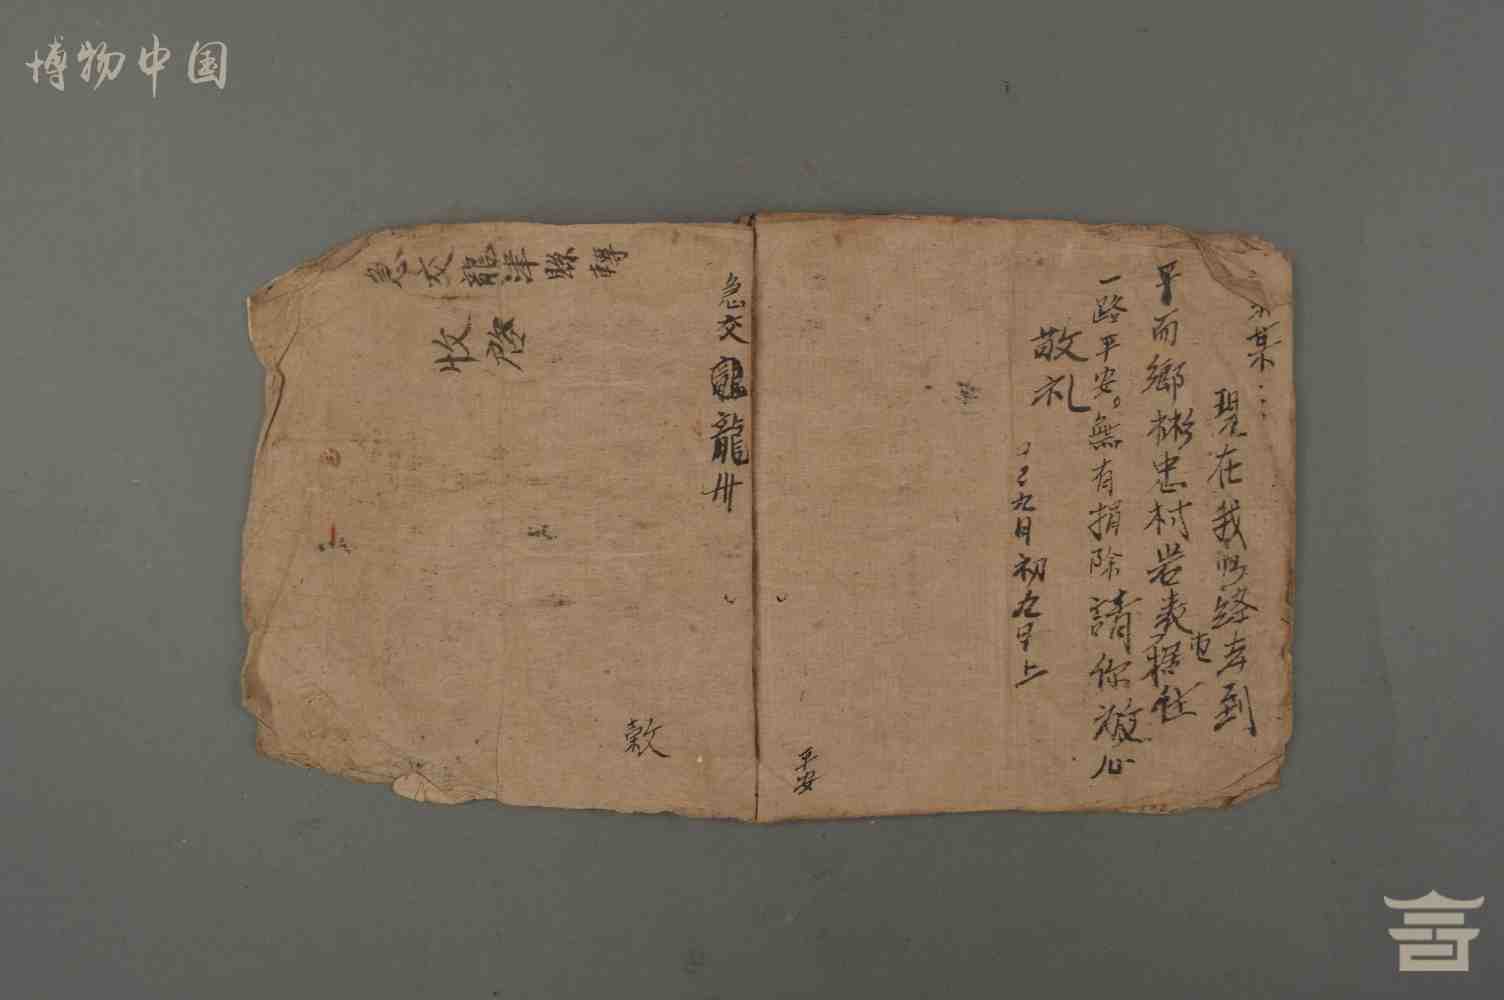 博物中国
某
現在我的路去到
平而鄉彬忠村岩表
屯
住
一路平安。無有損除請你放心
敬礼
九月初九早上
平安
急交龍龍州
穀
急交龍津縣轉
收啓